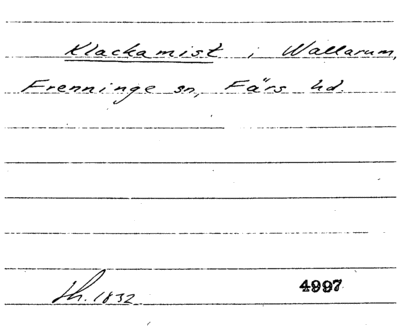 Klackamist i Wallarum,
Frenninge sn, Färs hd.
Th. 1832 4997